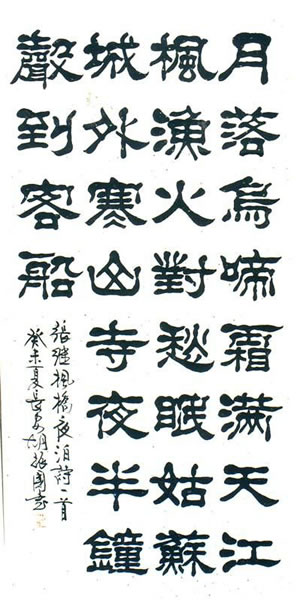 月落烏啼霜滿天江
楓漁火對愁眠姑蘇
城外寒山寺夜半鐘
聲到客船
張繼楓橋夜泊詩一首
癸未夏長安胡振國書